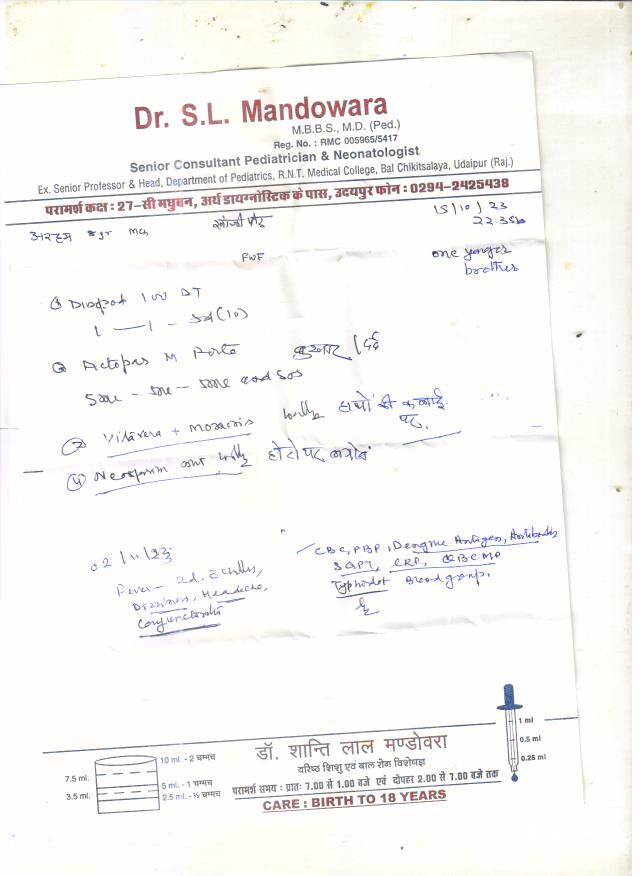 Dr. S.L. Mandowara
M.B.B.S., M.D. (Ped.)
Reg. No. : RMC 005965/5417
Senior Consultant Pediatrician & Neonatologist
Ex. Senior Professor & Head, Department of Pediatrics, R.N.T. Medical College, Bal Chikitsalaya, Udaipur (Raj.)
परामर्श कक्ष : 27-सी मधुबन, अर्थ डायग्नोस्टिक के पास, उदयपुर फोन : 0294-2425438
15/10/23
8 yr Mch
FWF
one younger
brother
① 100 DT
1 — 1 - (10)
② M Forte बुखार / दर्द
5ml - 5ml - 5ml and SOS
③ + locally हाथों की कलाई
पर.
④ Neosporin ont locally होटो पर लगावें
02/11/23
Fever - 2d. c chills,
Dizziness, Headache,
Conjunctivitis
CBC, PBF, Dengue Antigen, Antibodies
SGPT, CRP, QBC MP
Typhidot Blood group.
1 ml
0.5 ml
0.25 ml
10 ml. - 2 चम्मच
7.5 ml.
5 ml. - 1 चम्मच
3.5 ml.
2.5 ml. - ½ चम्मच
डॉ. शान्ति लाल मण्डोवरा
वरिष्ठ शिशु एवं बाल रोग विशेषज्ञ
परामर्श समय : प्रातः 7.00 से 1.00 बजे एवं दोपहर 2.00 से 7.00 बजे तक
CARE : BIRTH TO 18 YEARS